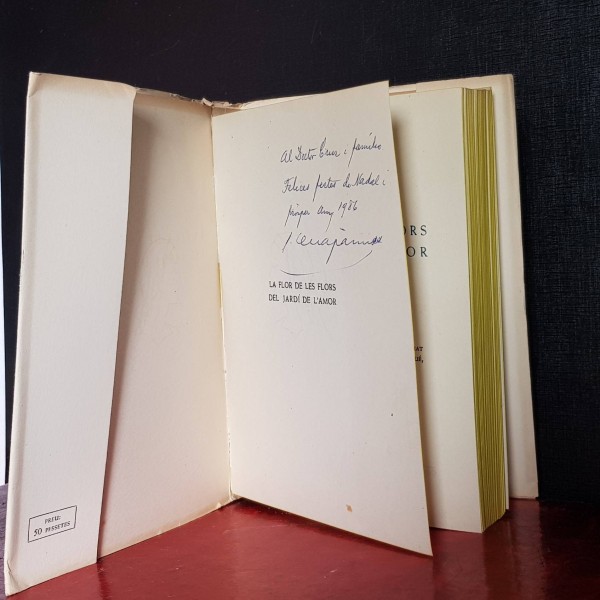 Al Doctor Cruz i família
Felices festes de Nadal i
pròsper Any 1986
LA FLOR DE LES FLORS
DEL JARDÍ DE L'AMOR
ORS
OR
AT
UÉ,
PREU:
50 PESSETES